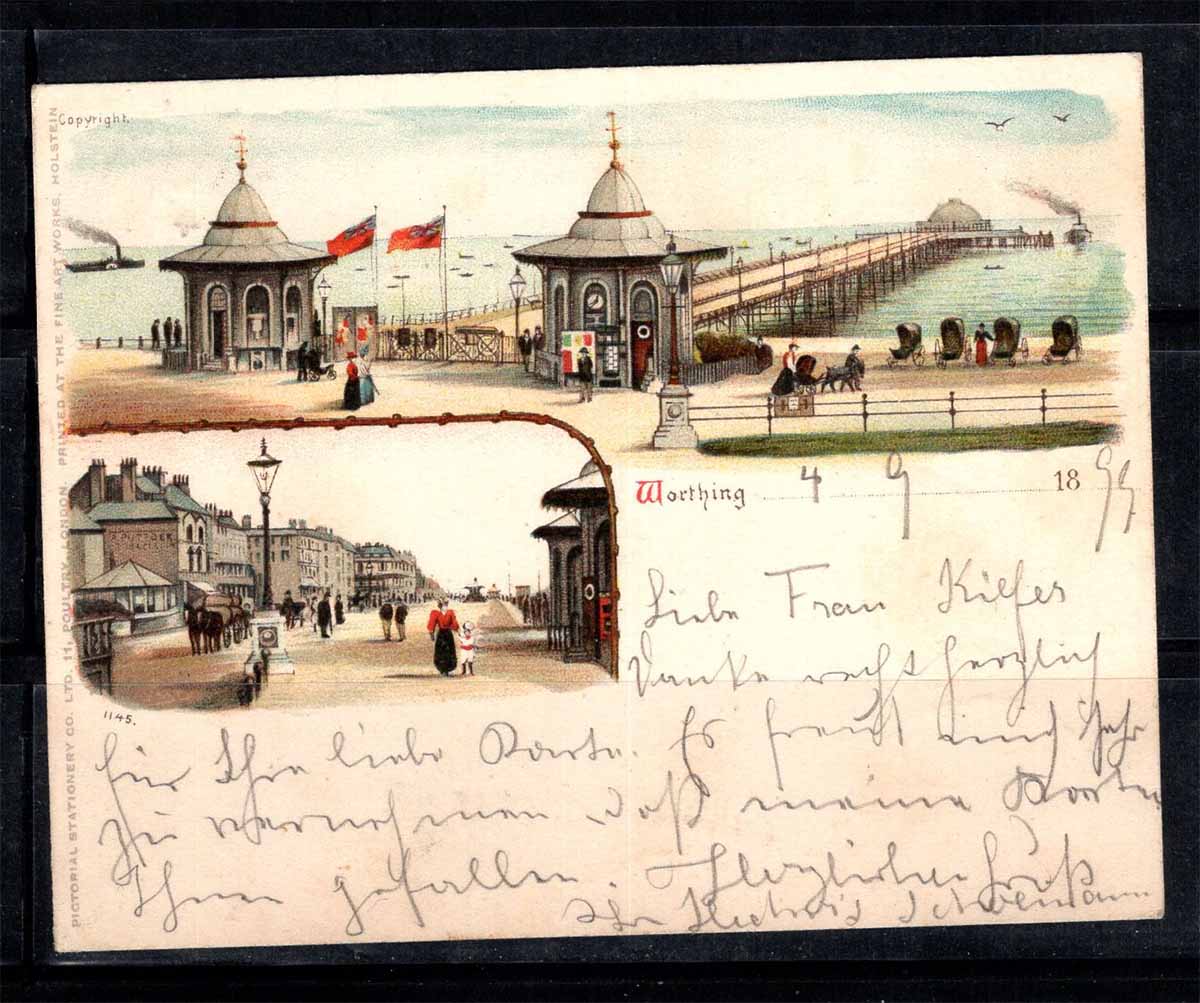 Copyright.
PICTORIAL STATIONERY CO. LTD. 11, POULTRY, LONDON. PRINTED AT THE FINE ART WORKS, HOLSTEIN
Worthing 4 9 1899
Liebe Frau Kiefer
Danke recht herzlich
1145.
für Ihre liebe Karte. Es freut mich sehr
zu vernehmen daß meine Karten
Ihnen gefallen. Herzlichen Gruß
Ihre Hedwig